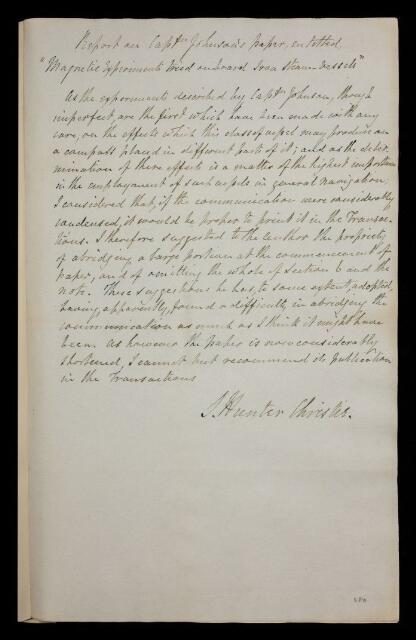 Report on Captn Johnson's paper, entitled,
"Magnetic Experiments tried on board Iron Steam Vessels"
As the experiments described by Captn Johnson, though
imperfect, are the first which have been made with any
care, on the effects which this class of vessel may produce on
a compass placed in different parts of it; and as the deter-
mination of these effects is a matter of the highest importance
in the employment of such vessels in general navigation;
I considered that, if the communication were considerably
condensed, it would be proper to print it in the Transac-
tions. I therefore suggested to the author the propriety
of abridging a large portion at the commencement of his
paper, and of omitting the whole of Section 6 and the
note. These suggestions he has, to some extent, adopted,
having apparently, found a difficulty in abridging the
communication as much as I think it might have
been. As however the paper is now considerably
shortened, I cannot but recommend its publication
in the Transactions
S. Hunter Christie.